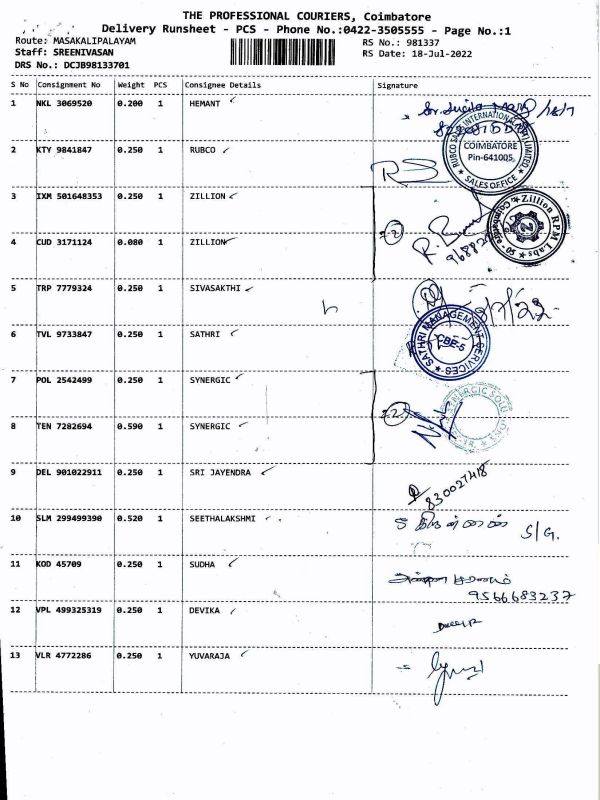 THE PROFESSIONAL COURIERS, Coimbatore
Delivery Runsheet - PCS - Phone No.:0422-3505555 - Page No.:1
Route: MASAKALIPALAYAM RS No.: 981337
Staff: SREENIVASAN RS Date: 18-Jul-2022
DRS No.: DCJB98133701
S No Consignment No Weight PCS Consignee Details Signature
1 NKL 3069520 0.200 1 HEMANT
2 KTY 9841847 0.250 1 RUBCO
COIMBATORE
Pin-641005
SALES OFFICE
3 IXM 501648353 0.250 1 ZILLION
Zillion RPM Labs
4 CUD 3171124 0.080 1 ZILLION
5 TRP 7779324 0.250 1 SIVASAKTHI
6 TVL 9733847 0.250 1 SATHRI
SATHRI MANAGEMENT SERVICES
CBE-5
7 POL 2542499 0.250 1 SYNERGIC
8 TEN 7282694 0.590 1 SYNERGIC
9 DEL 901022911 0.250 1 SRI JAYENDRA
10 SLM 299499390 0.520 1 SEETHALAKSHMI
S/G.
11 KOD 45709 0.250 1 SUDHA
9566683237
12 VPL 499325319 0.250 1 DEVIKA
13 VLR 4772286 0.250 1 YUVARAJA